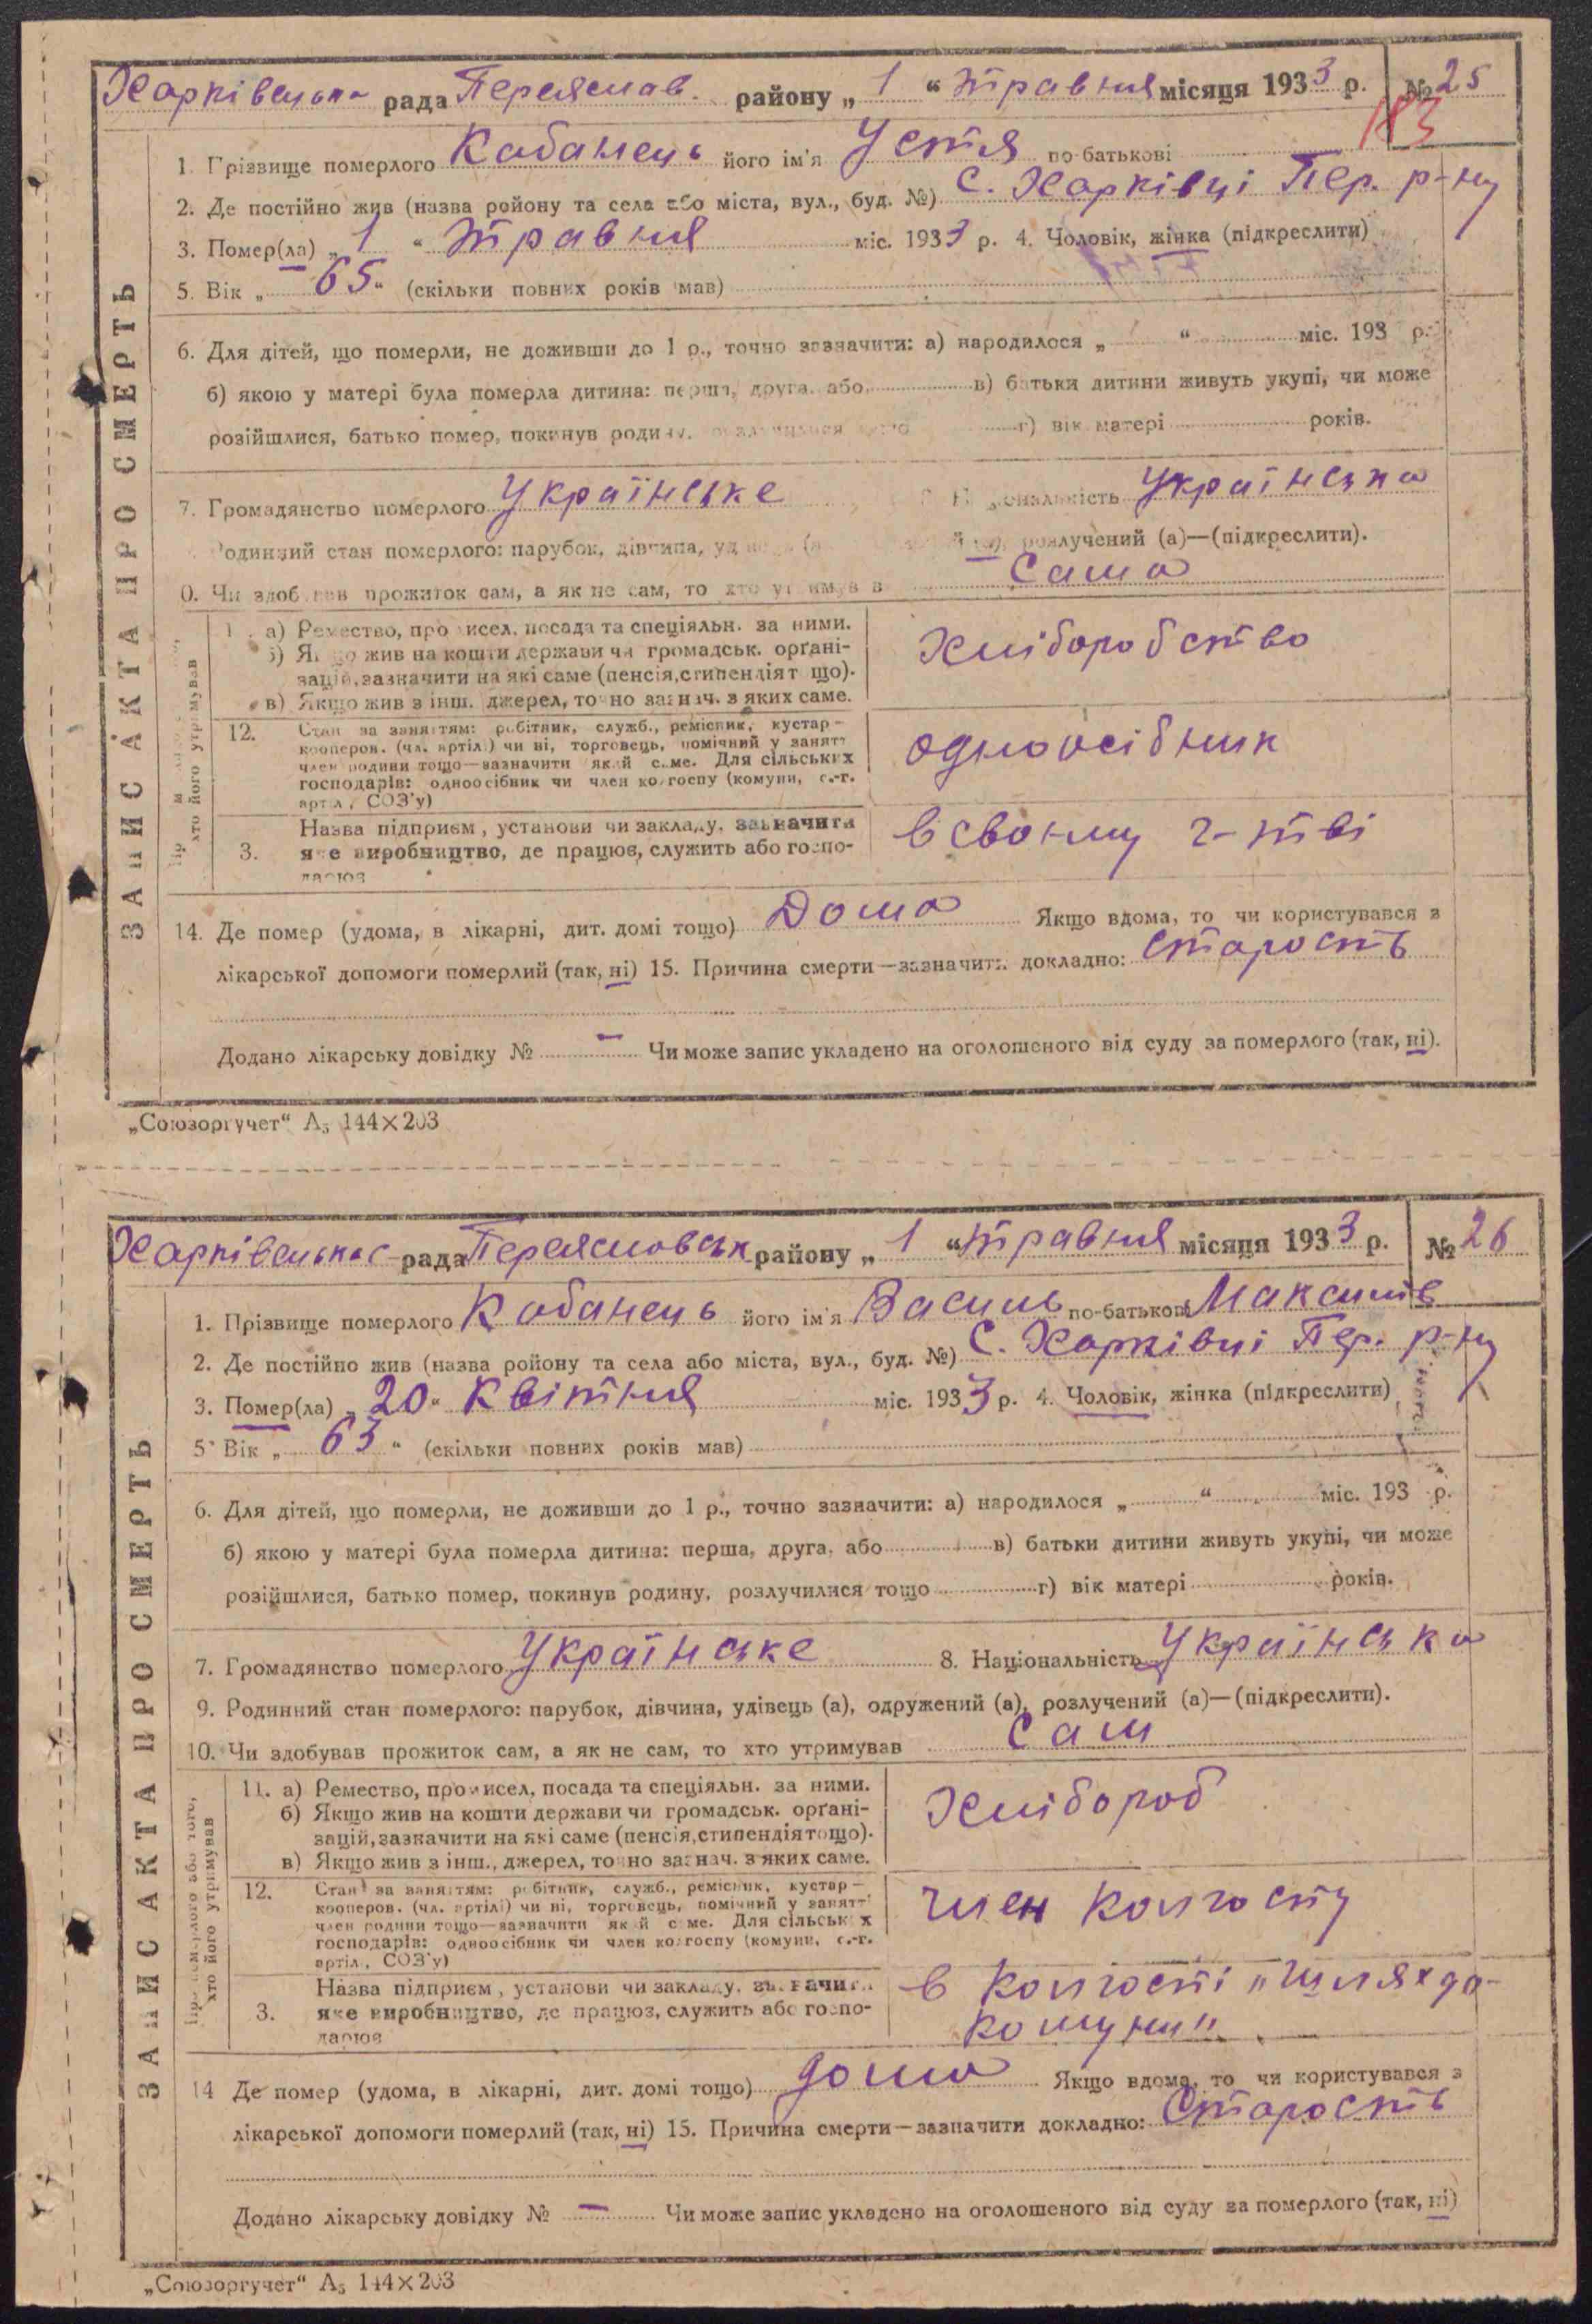 Харківська рада Переяслав. району „ 1 “ травня місяця 1933 р. № 25
183
ЗАПИС АКТА ПРО СМЕРТЬ
1. Прізвище померлого Кабанець його ім'я Устя по-батькові
2. Де постійно жив (назва ройону та села або міста, вул., буд. №) с. Харківці Пер. р-ну
3. Помер(ла) „ 1 “ травня міс. 1933 р. 4. Чоловік, жінка (підкреслити)
5. Вік „ 65 “ (скільки повних років мав)
6. Для дітей, що померли, не доживши до 1 р., точно зазначити: а) народилося „ “ міс. 193 р.
б) якою у матері була померла дитина: перша, друга, або в) батьки дитини живуть укупі, чи може
розійшлися, батько помер, покинув родину, г) вік матері років.
7. Громадянство померлого Українське Національність Українська
Родинний стан померлого: парубок, дівчина, розлучений (а)—(підкреслити).
0. Чи здобував прожиток сам, а як не сам, то хто утримував Сама
хто його утримував
а) Ремество, промисел, посада та спеціяльн. за ними.
б) Якщо жив на кошти держави чи громадськ. орґані-
зацій, зазначити на які саме (пенсія, стипендія тощо).
в) Якщо жив з інш. джерел, точно зазнач. з яких саме.
Хліборобство
12. Стан за заняттям: робітник, служб., ремісник, кустар—
кооперов. (чл. артілі) чи ні, торговець, помічний у занятт
член родини тощо—зазначити який саме. Для сільських
господарів: одноосібник чи член колгоспу (комуни, с.-г.
артіл, СОЗ'у)
одноосібник
Назва підприєм, установи чи закладу, зазначити
3. яке виробництво, де працює, служить або госпо-
дарює
в своєму г-тві
14. Де помер (удома, в лікарні, дит. домі тощо) Дома Якщо вдома, то чи користувався з
лікарської допомоги померлий (так, ні) 15. Причина смерти—зазначити докладно: старость
Додано лікарську довідку № — Чи може запис укладено на оголошеного від суду за померлого (так, ні).
„Союзоргучет“ А5 144×203
Харківська рада Переяславськ району „ 1 “ травня місяця 1933 р. № 26
ЗАПИС АКТА ПРО СМЕРТЬ
1. Прізвище померлого Кабанець його ім'я Василь по-батькові Максимів
2. Де постійно жив (назва ройону та села або міста, вул., буд. №) с. Харківці Пер. р-ну
3. Помер(ла) „ 20 “ квітня міс. 1933 р. 4. Чоловік, жінка (підкреслити)
5. Вік „ 63 “ (скільки повних років мав)
6. Для дітей, що померли, не доживши до 1 р., точно зазначити: а) народилося „ “ міс. 193 р.
б) якою у матері була померла дитина: перша, друга, або в) батьки дитини живуть укупі, чи може
розійшлися, батько помер, покинув родину, розлучилися тощо г) вік матері років.
7. Громадянство померлого Українське 8. Національність Українська
9. Родинний стан померлого: парубок, дівчина, удівець (а), одружений (а), розлучений (а)—(підкреслити).
10. Чи здобував прожиток сам, а як не сам, то хто утримував Сам
Про померлого або того,
хто його утримував
11. а) Ремество, промисел, посада та спеціяльн. за ними.
б) Якщо жив на кошти держави чи громадськ. орґані-
зацій, зазначити на які саме (пенсія, стипендія тощо).
в) Якщо жив з інш., джерел, точно зазнач. з яких саме.
Хлібороб
12. Стан за заняттям: робітник, служб., ремісник, кустар—
кооперов. (чл. артілі) чи ні, торговець, помічний у занятт
член родини тощо—зазначити який саме. Для сільських
господарів: одноосібник чи член колгоспу (комуни, с.-г.
артіл, СОЗ'у)
член колгоспу
Назва підприєм, установи чи закладу, зазначити
3. яке виробництво, де працює, служить або госпо-
дарює
в колгоспі „Шлях до-
комуни"
14 Де помер (удома, в лікарні, дит. домі тощо) дома Якщо вдома, то чи користувався з
лікарської допомоги померлий (так, ні) 15. Причина смерти—зазначити докладно: Старость
Додано лікарську довідку № — Чи може запис укладено на оголошеного від суду за померлого (так, ні)
„Союзоргучет“ А5 144×203